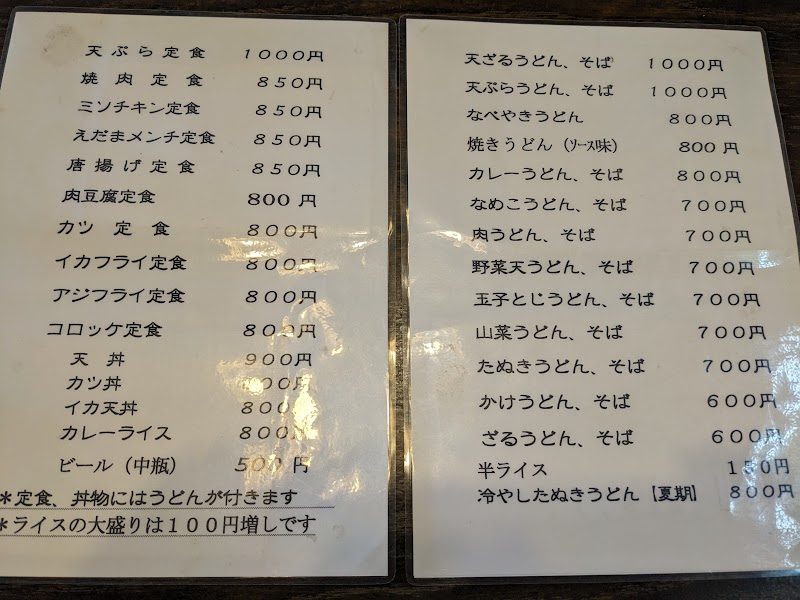 天ぷら定食 1000円
焼肉定食 850円
ミソチキン定食 850円
えだまメンチ定食 850円
唐揚げ定食 850円
肉豆腐定食 800円
カツ定食 800円
イカフライ定食 800円
アジフライ定食 800円
コロッケ定食 800円
天丼 900円
カツ丼 00円
イカ天丼 800
カレーライス 800円
ビール（中瓶） 500円
＊定食、丼物にはうどんが付きます
＊ライスの大盛りは100円増しです
天ざるうどん、そば 1000円
天ぷらうどん、そば 1000円
なべやきうどん 800円
焼きうどん（ソース味） 800円
カレーうどん、そば 800円
なめこうどん、そば 700円
肉うどん、そば 700円
野菜天うどん、そば 700円
玉子とじうどん、そば 700円
山菜うどん、そば 700円
たぬきうどん、そば 700円
かけうどん、そば 600円
ざるうどん、そば 600円
半ライス 150円
冷やしたぬきうどん【夏期】 800円